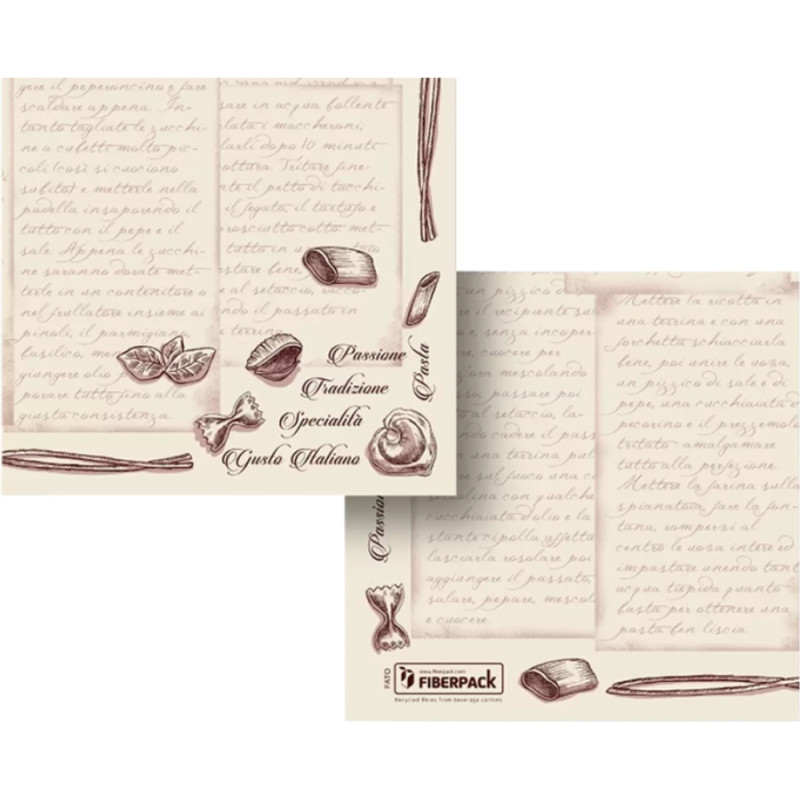 gere il peperoncino e fare
scaldare appena. In-
tanto tagliate le zucchi-
ne a cubetti molto pic-
coli (così si cuociono
subito) e metterle nella
padella insaporendo il
tutto con il pepe e il
sale. Appena le zucchi-
ne saranno dorate met-
terle in un contenitore o
nel frullatore insieme ai
pinoli, il parmigiano,
basilico,
giungere olio
porare tutto fino alla
giusta consistenza.
sare in acqua bollente
lata i maccheroni,
larli dopo 10 minuti
ottura. Tritare fine-
te il petto di tacchi-
il fegato, il tartufo e
rosciutto cotto met-
tutto in
stare bene,
al setaccio, racco-
ndo il passato in
terrina.
Passione
Tradizione
Specialità
Gusto Italiano
Pasta
un pizzico d
il recipiente su
e, senza incoper
cuocere per
ora mescolando
sa passare poi
al setaccio, la-
ndo cadere il pass
una terrina poi
sul fuoco una c
solina con qualche
cucchiaiata d'olio e la
stante cipolla affetta
lasciarla rosolare poi
aggiungere il passato,
salare, pepare, mescol
e cuocere.
Mettere la ricotta in
una terrina e con una
forchetta schiacciarla
bene, poi unire le uova,
un pizzico di sale e di
pepe, una cucchiaiata d
pecorino e il prezzemolo
tritato amalgamare
tutto alla perfezione.
Mettere la farina sulla
spianatoia, fare la fon-
tana, rompervi al
centro le uova intere ed
impastare unendo tant
acqua tiepida quanto
basta per ottenere una
pasta ben liscia.
Passion
FATO
www.fiberpack.com
FIBERPACK
Recycled fibres from beverage cartons